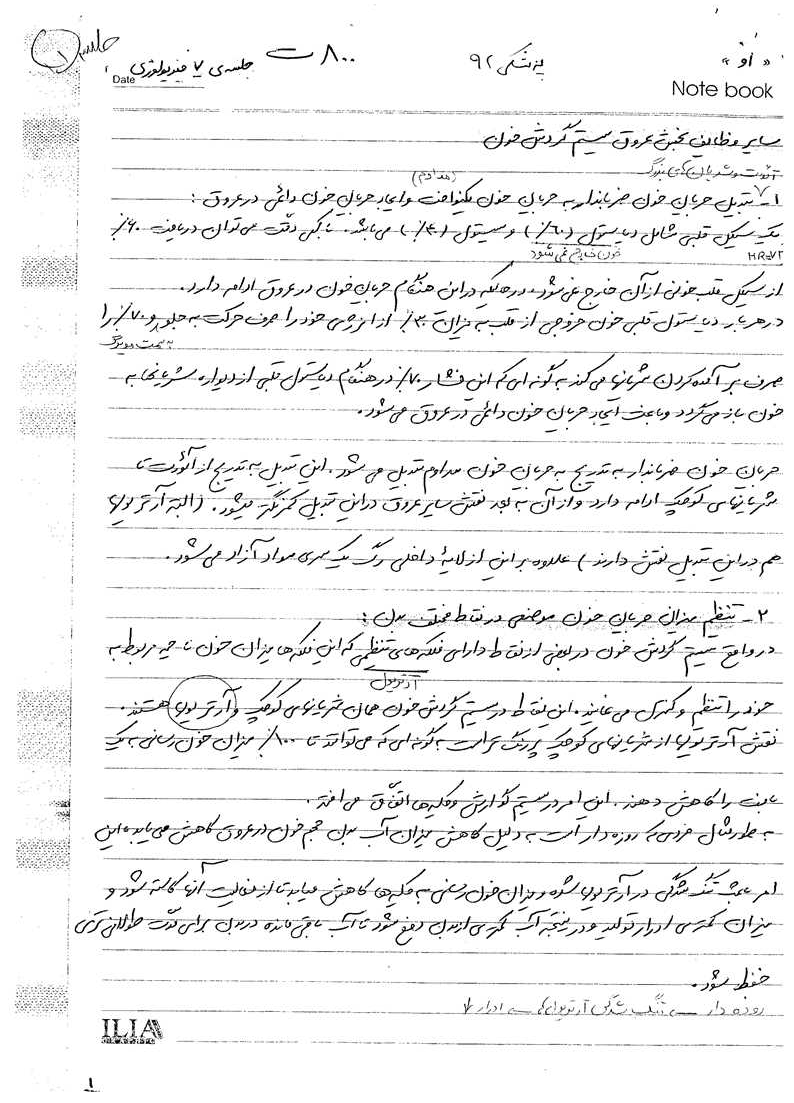 جلسه ۱
«او»
پزشکی ۹۲
۸۰۰ ت
جلسه‌ی ۷ فیزیولوژی
Date
Note book
سایر وظایف بخش عروق سیستم گردش خون
آئورت و شریان‌های بزرگ
(مداوم)
۱- تبدیل جریان خون ضرباندار به جریان خون یکنواخت و ایجاد جریان خون دائمی در عروق :
یک سیکل قلبی شامل دیاستول (۶۰٪) و سیستول (۴۰٪) می‌باشد. با کمی دقت می‌توان دریافت ۶۰٪
HR=72
خون خارج نمی‌شود
از سیکل قلب خونی از آن خارج نمی‌شود. در حالیکه در این هنگام جریان خون در عروق ادامه دارد.
در هر بار دیاستول قلبی خون خروجی از قلب به میزان ۳۰٪ از انرژی خود را صرف حرکت به جلو و ۷۰٪ را
به سمت مویرگ
صرف بر آکنده کردن شریانها می‌کند به گونه ای که این فشار ۷۰٪ در هنگام دیاستول قلبی از دیواره شریانها به
خون باز می‌گردد و باعث ایجاد جریان خون دائمی در عروق می‌شود.
جریان خون ضرباندار به تدریج به جریان خون مداوم تبدیل می‌شود. این تبدیل به تدریج از آئورت تا
شریانهای کوچک ادامه دارد و از آن به بعد نقش سایر عروق در این تبدیل کمرنگتر میشود. (البته آرتریولها
هم در این تبدیل نقش دارند) علاوه بر این از لایهٔ داخلی رگ یک سری مواد آزاد می‌شود.
۲- تنظیم میزان جریان خون موضعی در نقاط مختلف بدن :
در واقع سیستم گردش خون در بعضی از نقاط دارای فلکه‌های تنظیمی که این فلکه‌ها میزان خون ناحیه مربوط به
آرتریول
خود را تنظیم و کنترل می‌نمایند. این نقاط در سیستم گردش خون همان شریانهای کوچک و آرتریولها هستند.
نقش آرتریولها از شریانهای کوچک پررنگ تر است به گونه ای که می‌توانند تا ۱۰۰٪ میزان خون رسانی به یک
بافت را کاهش دهند. این امر در سیستم گوارش و کلیه‌ها اتفاق می‌افتد.
به طور مثال فردی که روزه دار است به دلیل کاهش میزان آب بدن حجم خون در عروق کاهش می‌یابد این
امر باعث تنگ شدگی در آرتریولها شده و میزان خون رسانی به کلیه‌ها کاهش میابد تا از فعالیت آنها کاسته شود و
میزان کمتری ادرار تولید و در نتیجه آب کمتری از بدن دفع شود تا آب باقی مانده در بدن برای مدت طولانی تری
حفظ شود.
روزه دار → تنگ شدگی آرتریولها → ادرار ↓
ILIA
GRAPHIC
۱